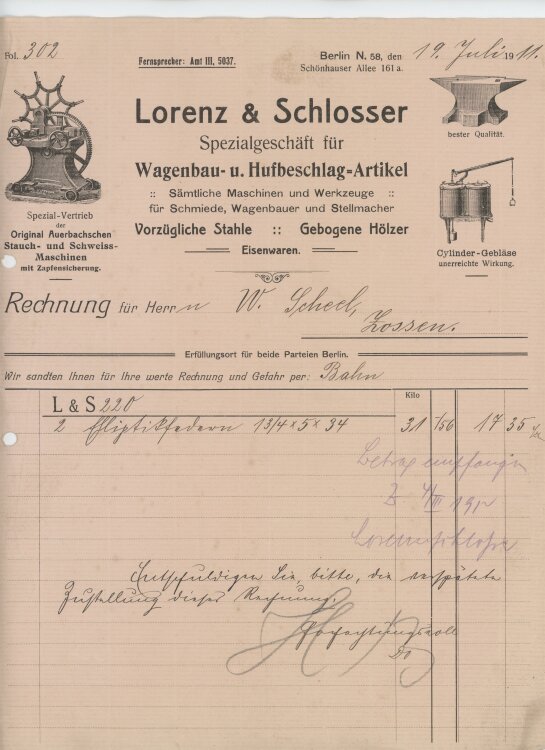 Fol. 302
Fernsprecher: Amt III, 5037.
Berlin N. 58, den 19. Juli 1911.
Schönhauser Allee 161 a.
Lorenz & Schlosser
Spezialgeschäft für
Wagenbau- u. Hufbeschlag-Artikel
:: Sämtliche Maschinen und Werkzeuge ::
für Schmiede, Wagenbauer und Stellmacher
Vorzügliche Stahle :: Gebogene Hölzer
Eisenwaren.
Spezial-Vertrieb
der
Original Auerbachschen
Stauch- und Schweiss-
Maschinen
mit Zapfensicherung.
bester Qualität.
Cylinder-Gebläse
unerreichte Wirkung.
Rechnung für Herrn W. Scheel,
Zossen.
Erfüllungsort für beide Parteien Berlin.
Wir sandten Ihnen für Ihre werte Rechnung und Gefahr per: Bahn
Kilo
L & S 220
2 Elliptikfedern 13/4 x 5 x 34 31 /56 17 35
Betrag empfangen
Entschuldigen Sie, bitte, die verspätete
Zustellung dieser Rechnung.
Hochachtungsvoll
Do